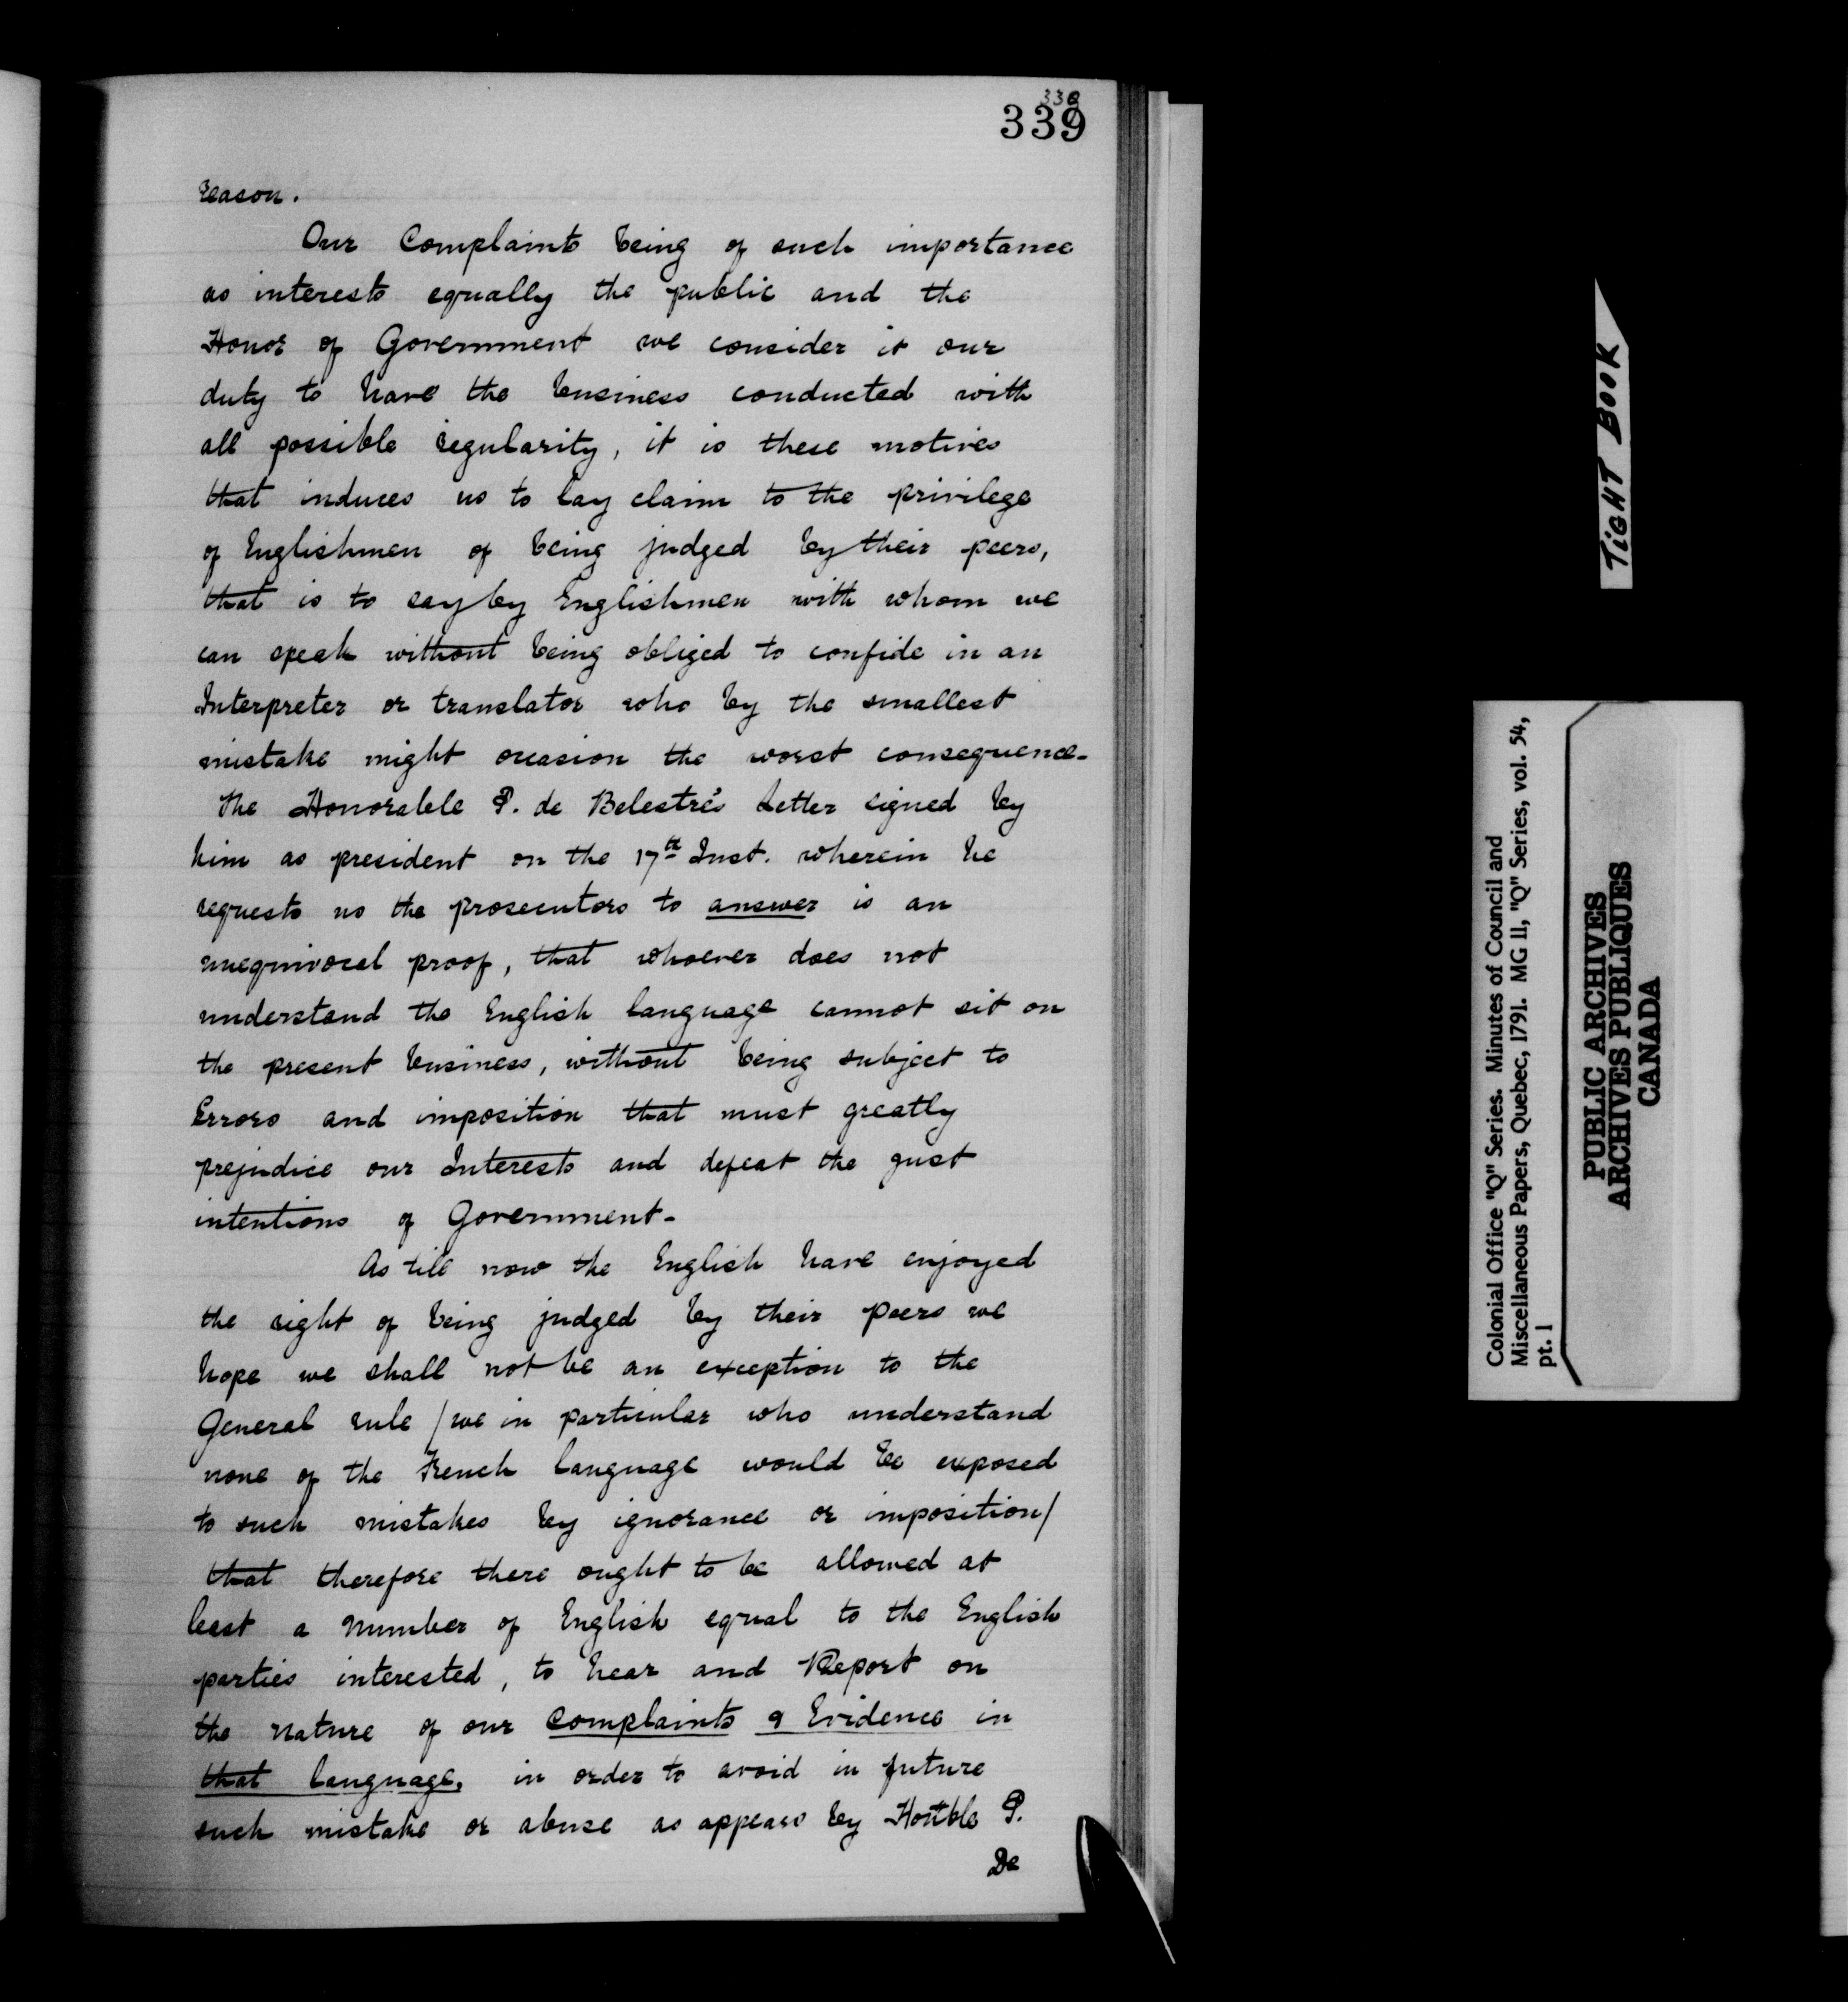 338
339
reason.
Our Complaints being of such importance
as interests equally the public and the
Honor of Government we consider it our
duty to have the business conducted with
all possible regularity, it is these motives
that induces us to lay claim to the privilege
of Englishmen of being judged by their peers,
that is to say by Englishmen with whom we
can speak without being obliged to confide in an
Interpreter or translator who by the smallest
mistake might occasion the worst consequence.
The Honorable P. de Belestre's Letter signed by
him as president on the 17th Inst. wherein he
requests us the prosecutors to answer is an
unequivocal proof, that whoever does not
understand the English language cannot sit on
the present business, without being subject to
Errors and imposition that must greatly
prejudice our Interests and defeat the just
intentions of Government-
As till now the English have enjoyed
the right of being judged by their peers we
hope we shall not be an exception to the
General rule /we in particular who understand
none of the French language would be exposed
to such mistakes by ignorance or imposition/
that therefore there ought to be allowed at
least a number of English equal to the English
parties interested, to hear and Report on
the nature of our Complaints & Evidence in
that language, in order to avoid in future
such mistake or abuse as appears by Honble P.
De
TIGHT BOOK
Colonial Office "Q" Series. Minutes of Council and
Miscellaneous Papers, Quebec, 1791. MG 11, "Q" Series, vol. 54,
pt. 1
PUBLIC ARCHIVES
ARCHIVES PUBLIQUES
CANADA